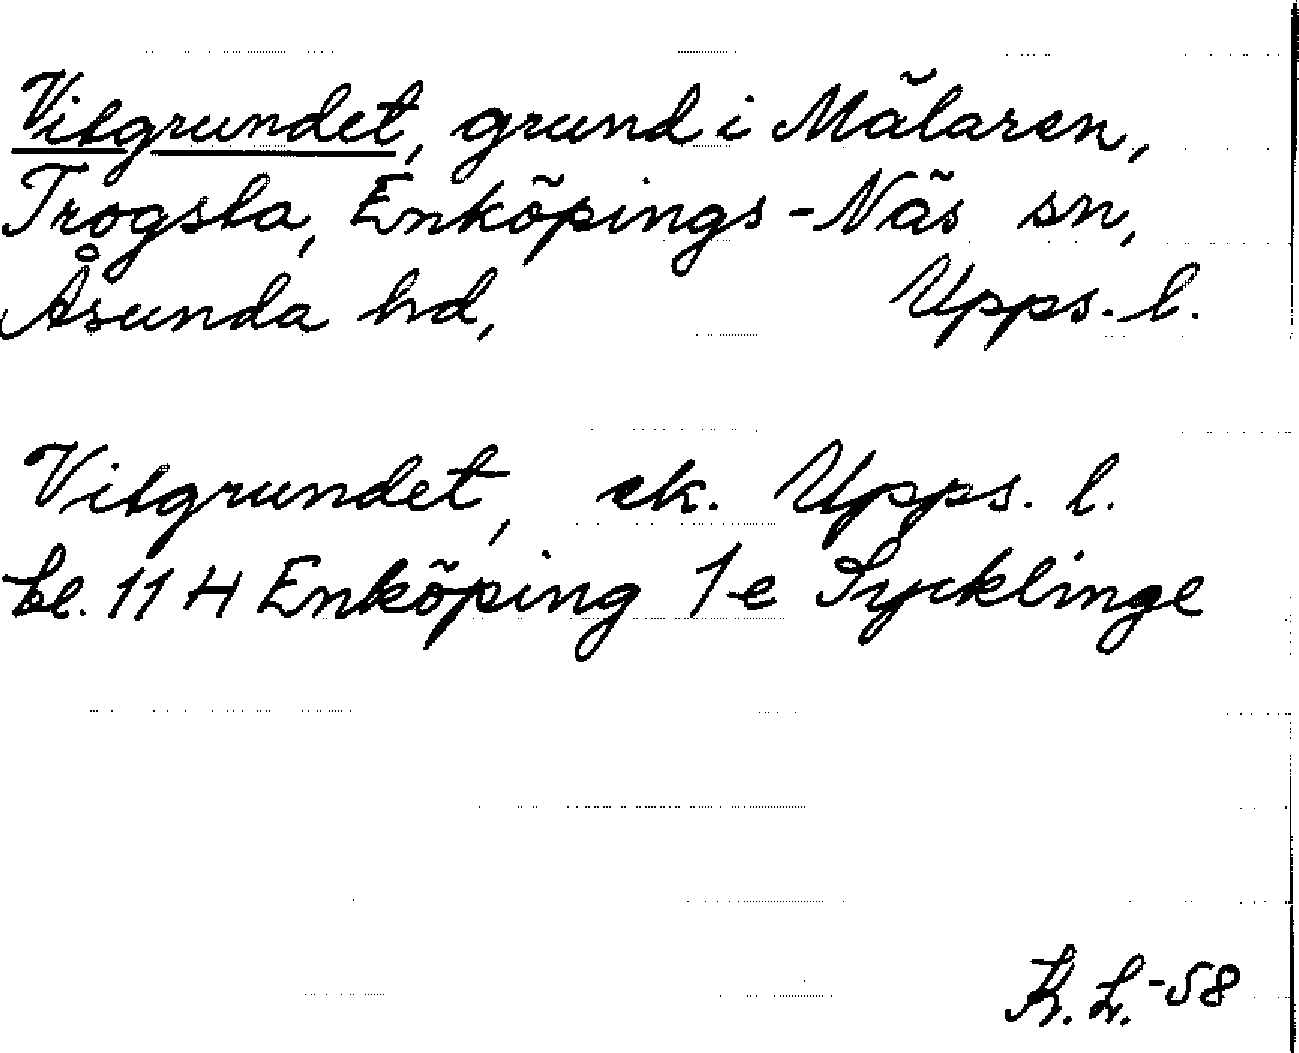 Visgrundet, grund i Mälaren,
Trogsta, Enköpings-Näs sn,
Åsunda hd, Upps. l.
Visgrundet, ek. Upps. l.
bl. 11 H Enköping 1e Sycklinge
K. L. -58